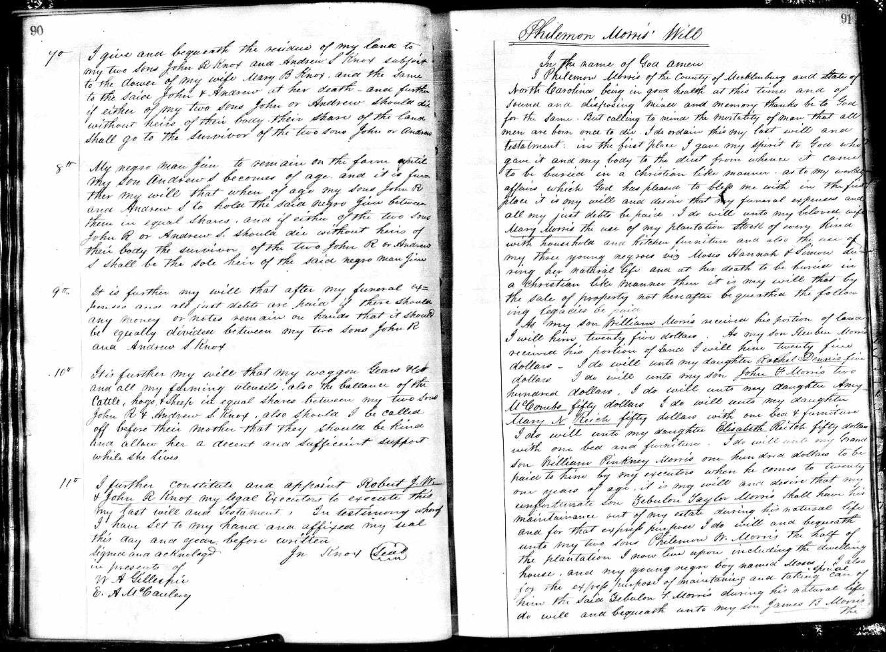 90
7th I give and bequeath the residue of my land to
my two sons John R Knox and Andrew S Knox subject
to the dower of my wife Mary B Knox, and the same
to the said John & Andrew at her death - and further
if either of my two sons John or Andrew should die
without heirs of their body their share of the land
shall go to the survivor of the two sons John or Andrew
8th My negro man Jim to remain on the farm until
my son Andrew S becomes of age and it is fur
ther my will that when of age my sons John R
and Andrew S to hold the said negro Jim between
them in equal shares, and if either of the two sons
John R or Andrew S. should die without heirs of
their body the survivor of the two John R or Andrew
S shall be the sole heir of the said negro man Jim
9th It is further my will that after my funeral ex=
penses and all just debts are paid if there should
any money or notes remain on hands that it should
be equally divided between my two sons John R
and Andrew S Knox
10th It is further my will that my waggon Gears &c
and all my farming utensils, also the ballance of the
Cattle, hogs & Sheep in equal shares between my two sons
John R & Andrew S Knox, also should I be called
off before their mother that they should be kind
and allow her a decent and sufficient support
while she lives
11th I further constitute and appoint Robert J.
& John R Knox my legal Executors to execute this
my last will and testament, In testimony whereof
I have set to my hand and affixed my seal
this day and year before written
Signed and acknolegd Jn Knox Seal
in presents of
W A Gillespie
E. A McCaulay
91
Philemon Morris' Will
In the name of God amen
I Philemon Morris of the County of Mecklenburg and State of
North Carolina being in good health at this time and of
sound and disposing mind and memory thanks be to God
for the same. But calling to mind the mortality of man, that all
men are born once to die I do ordain this my last will and
testatment: in the first place I gave my spirit to God who
gave it and my body to the dust from whence it came
to be buried in a christian like manner. as to my worldly
affairs which God has pleased to bless me with in the first
place it is my will and desire that my funeral expenses and
all my just debts be paid. I do will unto my beloved wife
Mary Morris the use of my plantation Stock of every kind
with household and kitchen furniture and also the use of
my three young negroes viz Moses Hannah & Simon du-
ring her natural life and at her death to be buried in
a christian like manner then it is my will that by
the sale of property not hereafter bequeathed the follow
ing legacies be paid
As my son William Morris received his portion of land
I will him twenty five dollars. As my son Reuben Morris
received his portion of land I will him twenty five
dollars - I do will unto my daughter Rachel Dennis five
dollars I do will unto my son John F Morris two
hundred dollars. I do will unto my daughter Amy
McCombs fifty dollars. I do will unto my daughter
Mary N Reich fifty dollars with one bed & furniture
I do will unto my daughter Elisabeth Ritch fifty dollars
with one bed and furniture. I do will unto my Grand
son William Pinkney Morris one hundred dollars to be
paid to him by my executors when he comes to twenty
one years of age it is my will and desire that my
unfortunate Son Zebulon Taylor Morris shall have his
maintainance out of my estate during his natural life
and for that express purpose I do will and bequeath
unto my two sons Philemon W. Morris the half of
the plantation I now live upon including the dwelling
house, and my young negro boy named Moses, I also
for the express purpose of maintaining and taking special care of
him the said Zebulon T Morris during his natural life
do will and bequeath unto my son James B Morris
the